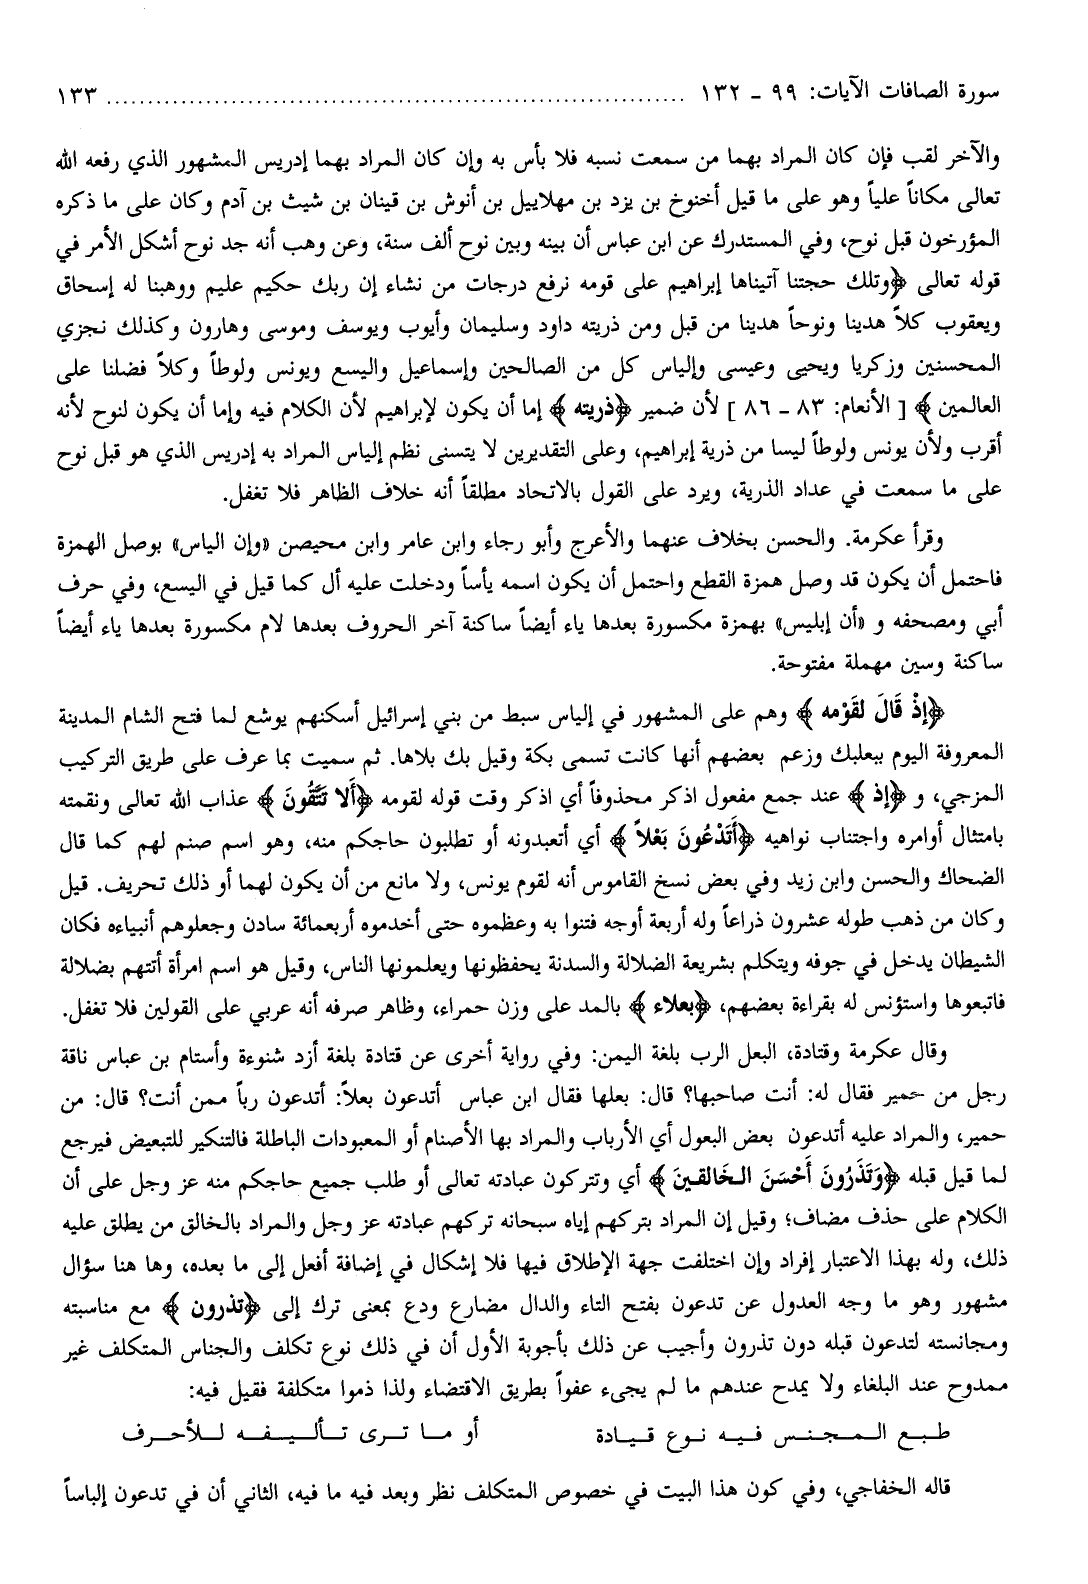 سورة الصافات الآيات: ٩٩ - ١٣٢ ........................................................................ ١٣٣
والآخر لقب فإن كان المراد بهما من سمعت نسبه فلا بأس به وإن كان المراد بهما إدريس المشهور الذي رفعه الله
تعالى مكاناً علياً وهو على ما قيل أخنوخ بن يزد بن مهلاييل بن أنوش بن قينان بن شيث بن آدم وكان على ما ذكره
المؤرخون قبل نوح، وفي المستدرك عن ابن عباس أن بينه وبين نوح ألف سنة، وعن وهب أنه جد نوح أشكل الأمر في
قوله تعالى ﴿وتلك حجتنا آتيناها إبراهيم على قومه نرفع درجات من نشاء إن ربك حكيم عليم ووهبنا له إسحاق
ويعقوب كلاً هدينا ونوحاً هدينا من قبل ومن ذريته داود وسليمان وأيوب ويوسف وموسى وهارون وكذلك نجزي
المحسنين وزكريا ويحيى وعيسى وإلياس كل من الصالحين وإسماعيل واليسع ويونس ولوطاً وكلاً فضلنا على
العالمين﴾ [ الأنعام: ٨٣ - ٨٦ ] لأن ضمير ﴿ذريته﴾ إما أن يكون لإبراهيم لأن الكلام فيه وإما أن يكون لنوح لأنه
أقرب ولأن يونس ولوطاً ليسا من ذرية إبراهيم، وعلى التقديرين لا يتسنى نظم إلياس المراد به إدريس الذي هو قبل نوح
على ما سمعت في عداد الذرية، ويرد على القول بالاتحاد مطلقاً أنه خلاف الظاهر فلا تغفل.
وقرأ عكرمة. والحسن بخلاف عنهما والأعرج وأبو رجاء وابن عامر وابن محيصن «وإن الياس» بوصل الهمزة
فاحتمل أن يكون قد وصل همزة القطع واحتمل أن يكون اسمه يأساً ودخلت عليه أل كما قيل في اليسع، وفي حرف
أبي ومصحفه و «أن إبليس» بهمزة مكسورة بعدها ياء أيضاً ساكنة آخر الحروف بعدها لام مكسورة بعدها ياء أيضاً
ساكنة وسين مهملة مفتوحة.
﴿إذْ قَالَ لقَوْمه﴾ وهم على المشهور في إلياس سبط من بني إسرائيل أسكنهم يوشع لما فتح الشام المدينة
المعروفة اليوم ببعلبك وزعم بعضهم أنها كانت تسمى بكة وقيل بك بلاها. ثم سميت بما عرف على طريق التركيب
المزجي، و ﴿إذ﴾ عند جمع مفعول اذكر محذوفاً أي اذكر وقت قوله لقومه ﴿أَلا تَتَّقُونَ﴾ عذاب الله تعالى ونقمته
بامتثال أوامره واجتناب نواهيه ﴿أَتَدْعُونَ بَعْلاً﴾ أي أتعبدونه أو تطلبون حاجكم منه، وهو اسم صنم لهم كما قال
الضحاك والحسن وابن زيد وفي بعض نسخ القاموس أنه لقوم يونس، ولا مانع من أن يكون لهما أو ذلك تحريف. قيل
وكان من ذهب طوله عشرون ذراعاً وله أربعة أوجه فتنوا به وعظموه حتى أخدموه أربعمائة سادن وجعلوهم أنبياءه فكان
الشيطان يدخل في جوفه ويتكلم بشريعة الضلالة والسدنة يحفظونها ويعلمونها الناس، وقيل هو اسم امرأة أتتهم بضلالة
فاتبعوها واستؤنس له بقراءة بعضهم، ﴿بعلاء﴾ بالمد على وزن حمراء، وظاهر صرفه أنه عربي على القولين فلا تغفل.
وقال عكرمة وقتادة، البعل الرب بلغة اليمن: وفي رواية أخرى عن قتادة بلغة أزد شنوءة وأستام بن عباس ناقة
رجل من حمير فقال له: أنت صاحبها؟ قال: بعلها فقال ابن عباس أتدعون بعلاً: أتدعون رباً ممن أنت؟ قال: من
حمير، والمراد عليه أتدعون بعض البعول أي الأرباب والمراد بها الأصنام أو المعبودات الباطلة فالتنكير للتبعيض فيرجع
لما قيل قبله ﴿وَتَذَرُونَ أَحْسَنَ الـخَالقـينَ﴾ أي وتتركون عبادته تعالى أو طلب جميع حاجكم منه عز وجل على أن
الكلام على حذف مضاف؛ وقيل إن المراد بتركهم إياه سبحانه تركهم عبادته عز وجل والمراد بالخالق من يطلق عليه
ذلك، وله بهذا الاعتبار إفراد وإن اختلفت جهة الإطلاق فيها فلا إشكال في إضافة أفعل إلى ما بعده، وها هنا سؤال
مشهور وهو ما وجه العدول عن تدعون بفتح التاء والدال مضارع ودع بمعنى ترك إلى ﴿تذرون﴾ مع مناسبته
ومجانسته لتدعون قبله دون تذرون وأجيب عن ذلك بأجوبة الأول أن في ذلك نوع تكلف والجناس المتكلف غير
ممدوح عند البلغاء ولا يمدح عندهم ما لم يجيء عفواً بطريق الاقتضاء ولذا ذموا متكلفة فقيل فيه:
طبع المجنس فيه نوع قيادة أو ما ترى تأليفه للأحرف
قاله الخفاجي، وفي كون هذا البيت في خصوص المتكلف نظر وبعد فيه ما فيه، الثاني أن في تدعون إلباساً